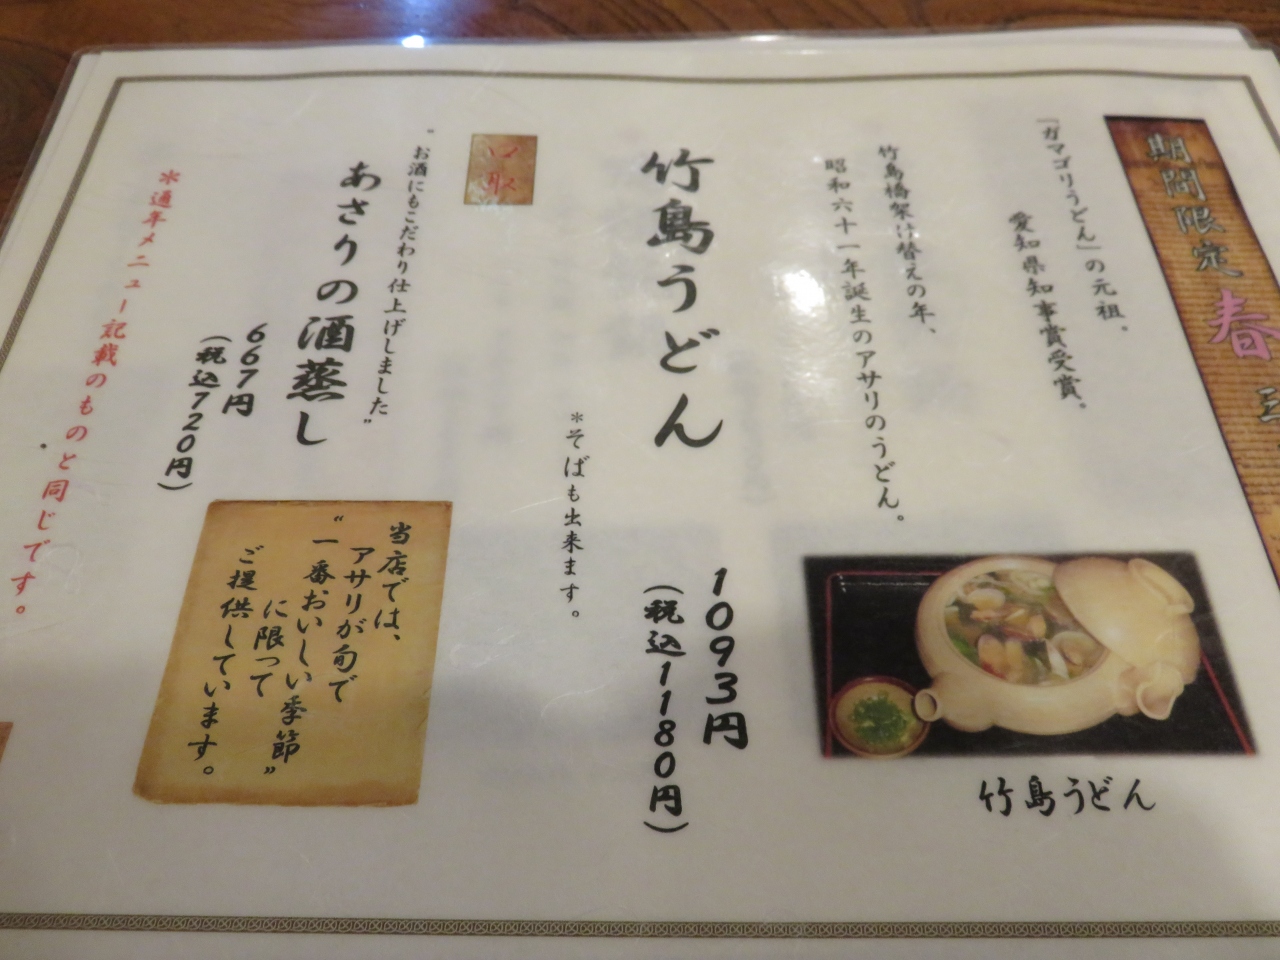 期間限定 春
「ガマゴリうどん」の元祖。
愛知県知事賞受賞。
竹島橋架け替えの年、
昭和六十一年誕生のアサリのうどん。
竹島うどん
竹島うどん
1093円
(税込1180円)
*そばも出来ます。
口取
"お酒にもこだわり仕上げしました"
あさりの酒蒸し
667円
(税込720円)
当店では、
アサリが旬で
"一番おいしい季節"
に限って
ご提供しています。
*通年メニュー記載のものと同じです。